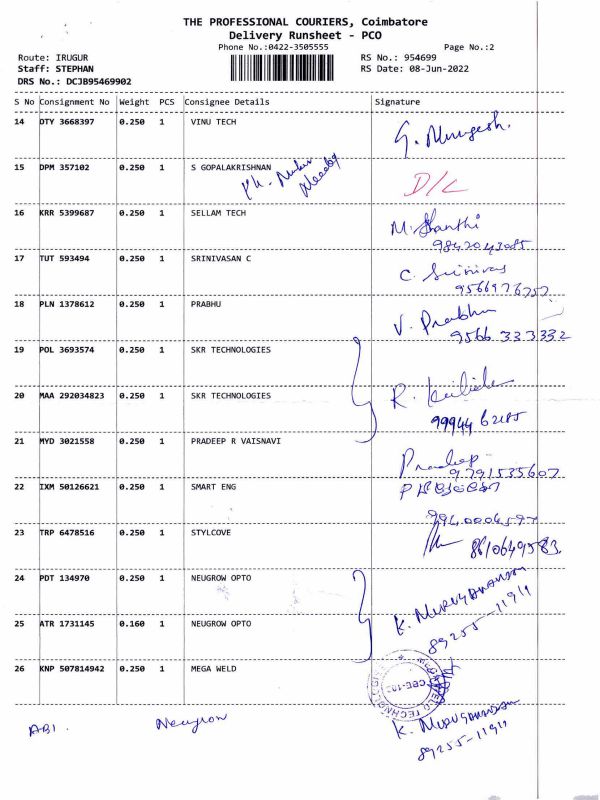 THE PROFESSIONAL COURIERS, Coimbatore
Delivery Runsheet - PCO
Phone No.:0422-3505555 Page No.:2
Route: IRUGUR RS No.: 954699
Staff: STEPHAN RS Date: 08-Jun-2022
DRS No.: DCJB95469902
S No Consignment No Weight PCS Consignee Details Signature
14 DTY 3668397 0.250 1 VINU TECH G. Murugesh.
15 DPM 357102 0.250 1 S GOPALAKRISHNAN Ph. Number D/L
16 KRR 5399687 0.250 1 SELLAM TECH M. Shanthi
9842043085
17 TUT 593494 0.250 1 SRINIVASAN C C. Srinivas
9566976757
18 PLN 1378612 0.250 1 PRABHU V. Prabhu
9566 333332
19 POL 3693574 0.250 1 SKR TECHNOLOGIES
20 MAA 292034823 0.250 1 SKR TECHNOLOGIES R.
99944 62185
21 MYD 3021558 0.250 1 PRADEEP R VAISNAVI Pradeep
9791535607
22 IXM 50126621 0.250 1 SMART ENG
23 TRP 6478516 0.250 1 STYLCOVE 8610649583
24 PDT 134970 0.250 1 NEUGROW OPTO
25 ATR 1731145 0.160 1 NEUGROW OPTO K. MURUGANANDAM
89255-11911
26 KNP 507814942 0.250 1 MEGA WELD
MEGA WELD TECHNOLOGIES
CBE-103
ABI. Neugrow K. MURUGANANDAM
89255-11911